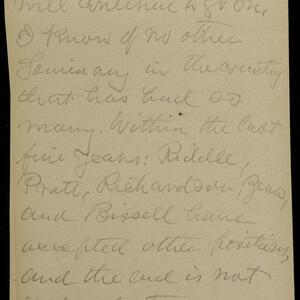 will continue to go on,
I know of no other
Seminary in the country
that has had so
many. Within the last
five years: Riddle,
Pratt, Richardson,
and Bissell have
accepted other positions,
and the end is not